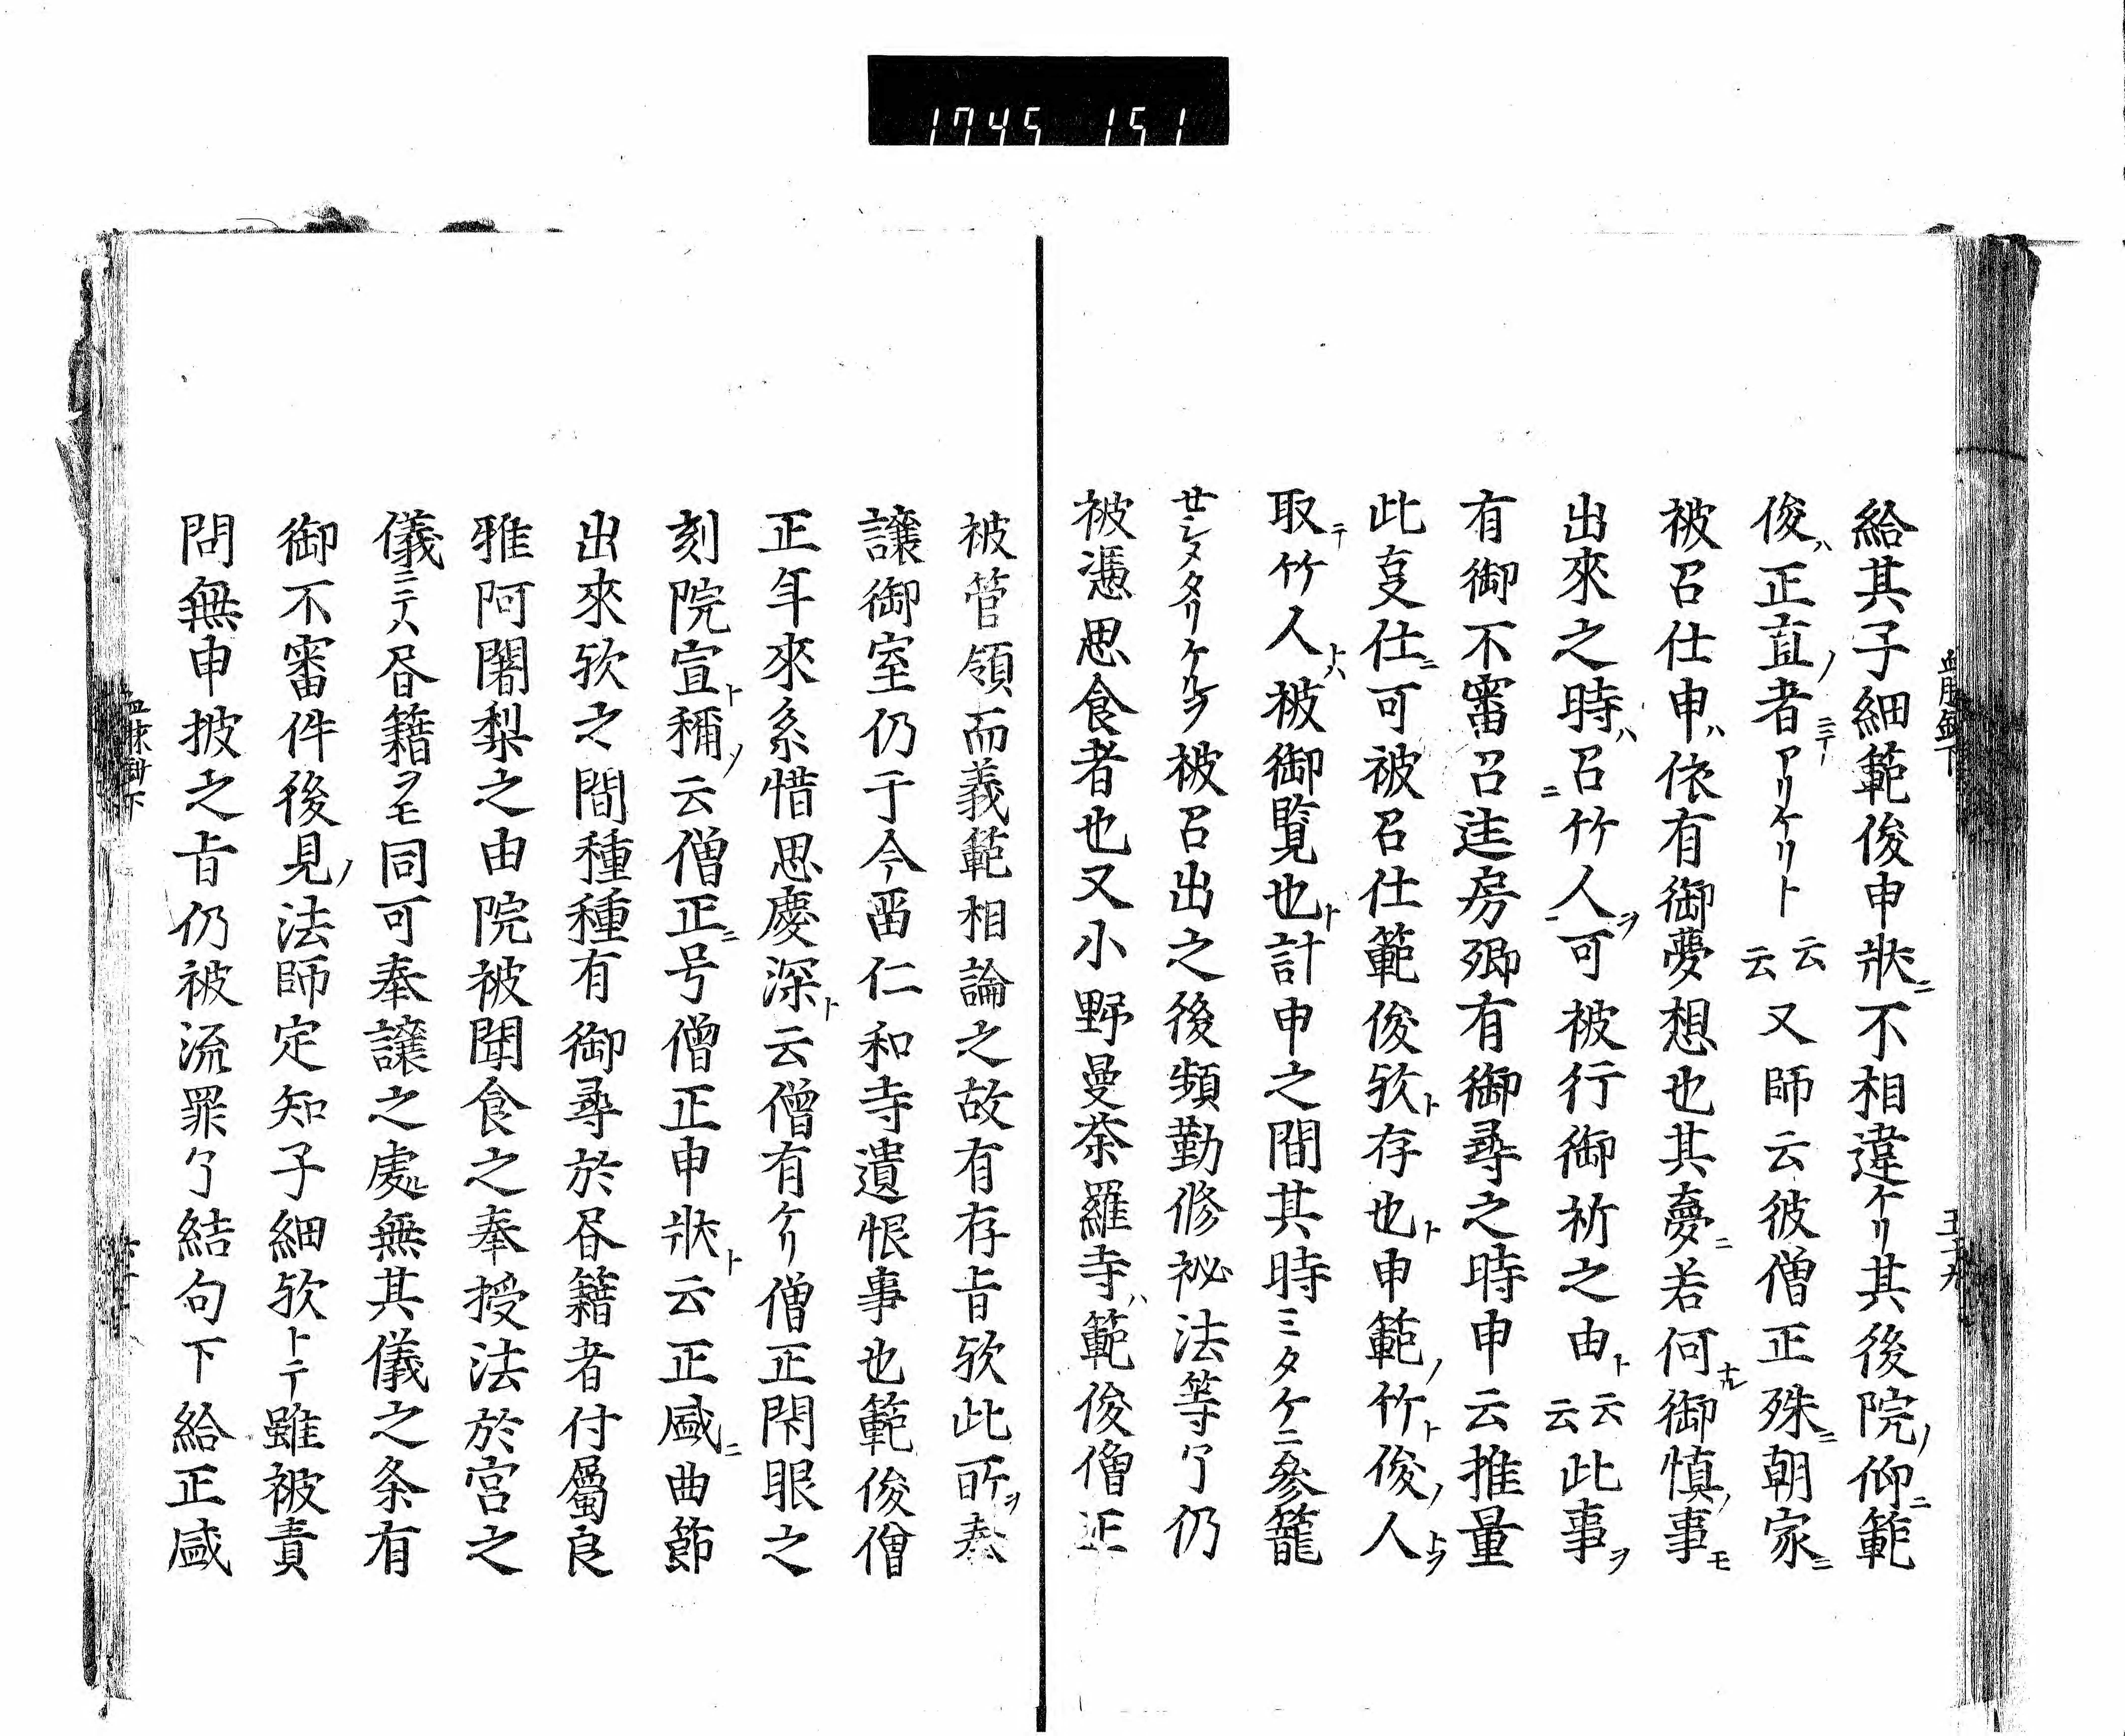 1745 151
給其子細範俊申狀ニ不相違ケリ其後院ノ仰ニ範
俊ハ正直ノ者ニテアリケリト云云又師云彼僧正殊ニ朝家ニ
被召仕申ハ依有御夢想也其夢ニ若何ナル御慎ノ事モ
出來之時ハ召ニ竹人ヲ可被行御祈之由ト云云此事ヲ
有御不審召匡房卿有御尋之時申云推量
此㕝仕ニ可被召仕範俊欤ト存也ト申範ノ竹ト俊ノ人トヲ
取テ竹人トハ被御覧也ト計申之間其時ミタケニ參籠
せシメタリケルヲ被召出之後頻勤修祕法等了仍
被憑思食者也又小野曼荼羅寺ハ範俊僧正
被管領而義範相論之故有存旨欤此所ヲ奉
譲御室仍于今畱仁和寺遺恨事也範俊僧
正年來系惜思慶深ト云僧有ケリ僧正閇眼之
刻院宣ト稱ノ云僧正ニ号僧正申狀ト云正咸ニ曲節
出來欤之間種種有御尋於昼籍者付屬良
雅阿闍梨之由院被聞食之奉授法於宮之
儀ニテハ昼籍ヲモ同可奉譲之處ルニ無其儀之条有
御不審件後見ノ法師定知子細欤トテ雖被責
問無申披之旨仍被流罪了結句下給正咸